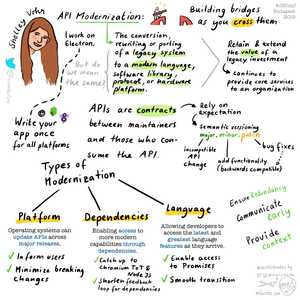 Shelley Vohr
API Modernization:
Building bridges
as you cross them
I work on
Electron.
But do
we mean
the same?
The conversion,
rewriting or porting
of a legacy system
to a modern language,
software library,
protocol, or hardware
platform.
Retain & extend
the value of a
legacy investment
Continues to
provide core services
to an organization
Write your
app once
for all platforms
APIs are contracts
between maintainers
and those who con-
sume the API.
Rely on
expectation
Semantic versioning
major. minor. patch
incompatible
API
change
add functionality
(backwards compatible)
bug fixes
Types of
Modernization
Platform
Operating systems can
update APIs across
major releases.
Inform users
Minimize breaking
changes
Dependencies
Enabling access to
more modern
capabilities through
dependencies.
Catch up to
Chromium ToT &
Node JS
Shorten feedback
loop for dependencies
Language
Allowing developers to
access the latest and
greatest language
features as they arrive.
Enable access
to Promises
Smooth transition
Ensure Redundancy
Communicate
early
Provide
Context